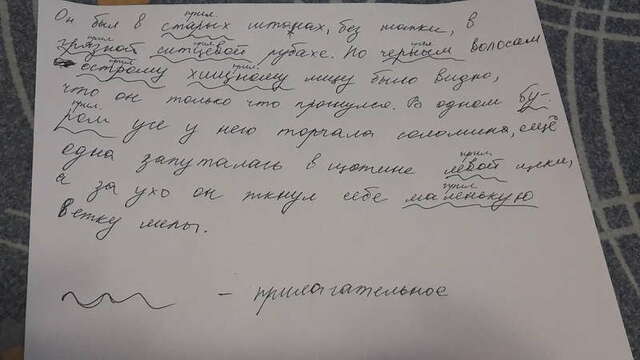 прил.
Он был в старых штанах, без шапки, в
прил. прил. прил.
грязной ситцевой рубахе. По черным волосам
прил. прил.
острому хищному лицу было видно,
что он только что проснулся. В одном бу-
прил.
ром усе у него торчала соломина, ещё
прил.
одна запуталась в щетине левой щеки,
прил.
а за ухо он ткнул себе маленькую
ветку липы.
— прилагательное